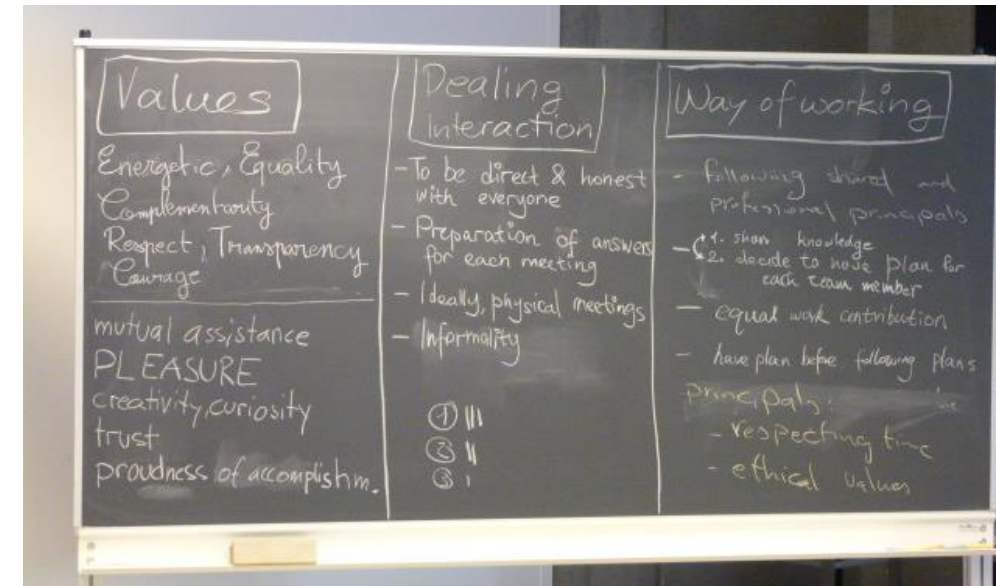 Values
Energetic, Equality
Complementrouty
Respect, Transparency
Courage
mutual assistance
PLEASURE
creativity, curiosity
trust
proudness of accomplishm.
Dealing
Interaction
- To be direct & honest
with everyone
- Preparation of answers
for each meeting
- Ideally, physical meetings
- Informality
① |||
② ||
③ |
Way of working
- following shared and
professional principals
- 1. share knowledge
2. decide to have plan for
each team member
- equal work contribution
- have plan before following plans
principals:
- respecting time
- ethical values